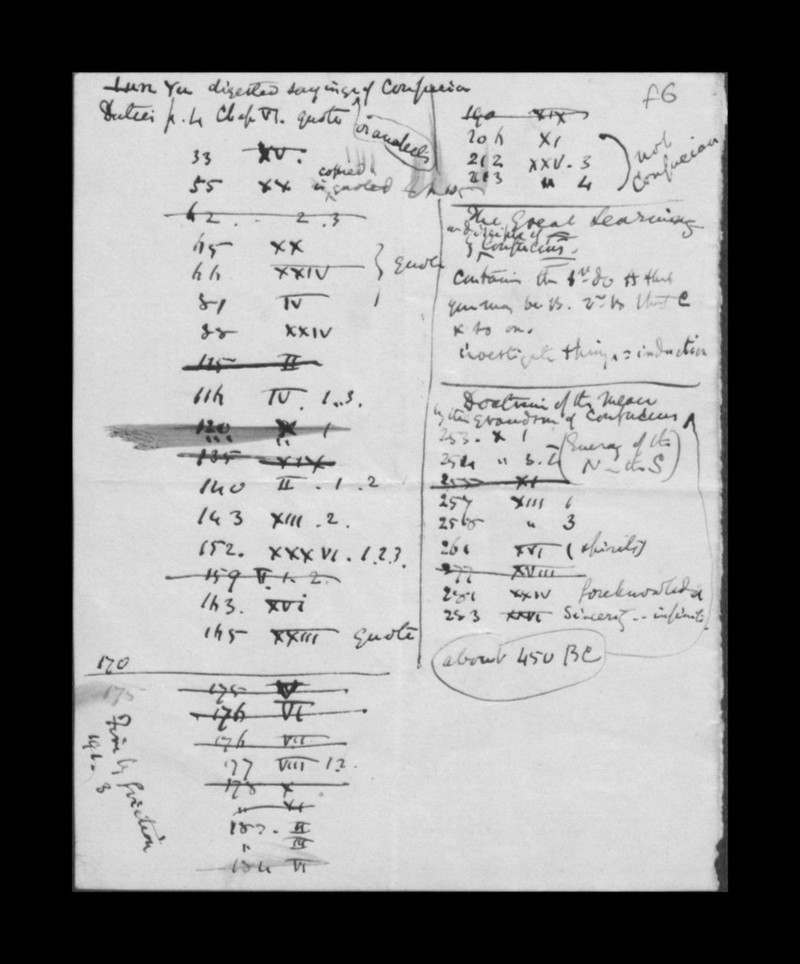 Lun Yu digested sayings of Confucian
Duties p. 4 Chap VI. quote
or analects
33 XV.
55 XX copied
in quoted
62 . . 2 . 3
65 XX
66 XXIV } quote
81 IV
88 XXIV
115 II
116 IV. 1..3.
120 IX 1
135 XIX
140 II . 1 . 2
143 XIII . 2.
152. XXXVI . 1.2.3.
159 V. 1. 2.
163. XVI
165 XXIII quote
170
175 V
175
176 VI
176 VII
177 VIII 1 2.
178 X
" XI
183. II
" III
184 VI
Fire by friction
191. 3
f6
190 XIX
204 XI
212 XXV. 3
213 " 4
not Confucian
The Great Learning
a disciple of
Confucius.
contains the
you may be B.
x so on.
investigate things = induction
Doctrine of the Mean
by the Grandson of Confucius
253. X 1
254 " 3.4
(Energy of the
N - the S)
255 XI
257 XIII 1
258 " 3
261 XVI (spirits)
277 XVIII
281 XXIV foreknowledge
283 XXVI Sincerity -- infinite
about 450 BC